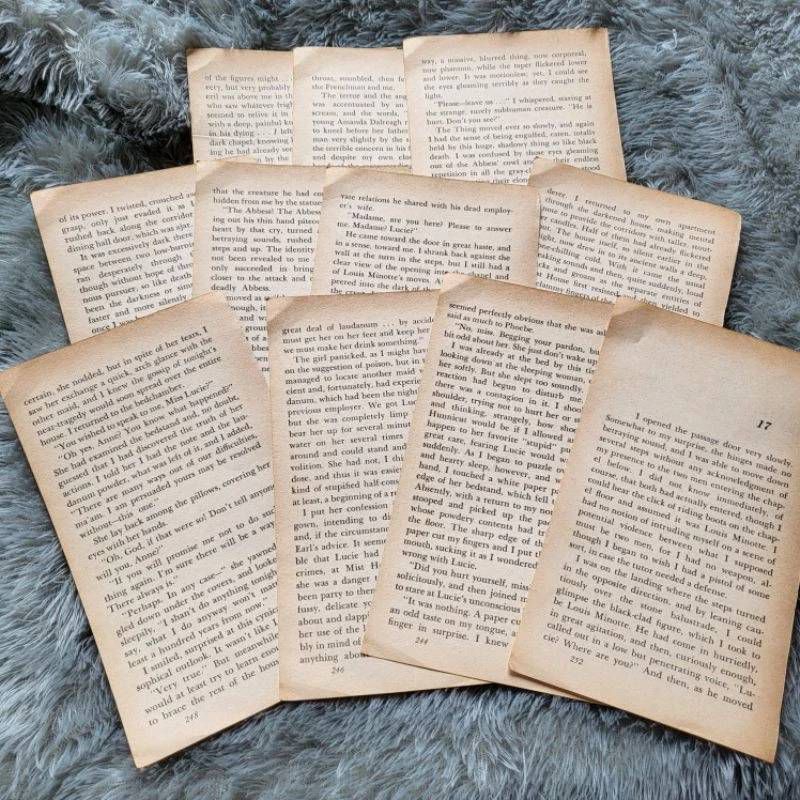 of the figures might . .
ery, but very probably
evil was above me in th
who saw whatever frigh
seemed to relive it in
with a deep, painful b
in his dying . . . I left
dark chapel, knowing
ing he had already som
thrust, stumbled, then fe
the Frenchman and me.
The terror and the ang
was accentuated by an
scream, and the words,
young Amanda Dalreagh r
to kneel before her father
man very slightly by the s
the terrible descent in his
and despite my own clos
way, a massive, blurred thing, now corporeal,
now phantom, while the taper flickered lower
and lower. It was motionless; yet, I could see
the eyes gleaming terribly as they caught the
light.
"Please—leave us . . ." I whispered, staring at
the strange, surely subhuman creature. "He is
hurt. Don't you see?"
The Thing moved ever so slowly, and again
I had the sense of being engulfed, eaten, totally
held by this huge, shadowy thing so like black
death. I was confused by those eyes gleaming
out of the Abbess' cowl and their endless
repetition in all the gray-cl
of its power. I twisted, crouched aw
grasp, only just evaded it as I
rushed back along the corridor
dining hall door, which was ajar.
It was excessively dark there
space between two low-burnin
ran desperately through t
though without hope of th
nous pursuer, so like death
been the darkness or sin
faster and more silently
once I was
that the creature he had co
hidden from me by the statue
"The Abbess! The Abbes
ing out his thin hand piteou
heart by that cry, turned a
betraying sounds, rushed
steps and up. The identity
not been revealed to me
only succeeded in bring
closer to the attack and d
deadly Abbess.
I moved as q
though, it
vate relations he shared with his dead employ-
er's wife.
"Madame, are you here? Please to answer
me. Madame? Lucie?"
He came toward the door in great haste, and
in a sense, toward me. I shrank back against the
wall at the turn in the steps, but I still had a
clear view of the opening into the
of Louis Minotte's moves. I
peered into the dark of the
derer. I returned to my own apartment
through the darkened house, making mental
note to provide the corridors with more, and taller
er candles. Half of them had already flickered
out. The house itself, so silent earlier in the
night, now drew in to its ancient walls a deep,
chilling cold. With it came the usual
creaking sounds and then, quite suddenly, loud
House first resisted, then yielded to
clammy fingers of the
certain, she nodded, but in spite of her fears, I
saw her exchange a quick, arch glance with the
other maid, and I knew the gossip of tonight's
near-tragedy would soon spread over the entire
house. I returned to the bedchamber.
"You wished to speak to me, Miss Lucie?"
"Oh yes, Anne? You know what happened?"
She had examined the bedstand and, no doubt,
guessed that I had discovered the truth of her
actions. I told her I had the note and the lau-
danum powder, what was left of it, and I added,
"There are many ways out of our difficulties,
ma'am. I am persuaded yours may be resolved
without—this one."
She lay back among the pillows, covering her
eyes with her hands.
"Oh, God, if that were so! Don't tell anyone
will you, Anne?"
"If you will promise me not to do any
thing again. I'm sure there will be a way
There always is."
"Perhaps. In any case—" she yawned
gled down under the covers, and looke
sleepily, "I shan't do anything tonigh
say, what I do anyway won't mat
least a hundred years from now."
I smiled, surprised at this cynic
sophical outlook. It wasn't like L
"Very true." But meanwhile
would at least try to learn enou
to brace the rest of the hous
248
great deal of laudanum . . . by accid
must get her on her feet and keep her
we must make her drink something."
The girl panicked, as I might hav
on the suggestion of poison, but in
managed to locate another maid w
cient and, fortunately, had experie
danum, which had been the night
previous employer. We got Luc
but she was completely limp
bear her up for several minut
water on her several times
around and could stand and
volition. She had not, I th
dose, and thus it was easie
kind of stupified half-cons
at least, a beginning of a r
I put her confession
gown, intending to di
and, if the circumstanc
Earl's advice. It seeme
ble that Lucie had
crimes, at Mist H
she was a danger t
been party to the
fussy, delicate y
about and slapp
her use of the l
bly in mind of
anything abo
246
seemed perfectly obvious that she was asl
said as much to Phoebe.
"No, miss. Begging your pardon, bu
bit odd about her. She just don't wake up
I was already at the bed by this m
looking down at the sleeping woman,
her softly. But she slept too soundly
reaction had begun to disturb me
there was a contagion in it. I shoo
shoulder, trying not to hurt her or s
and thinking, strangely, how sho
Humicus would be if I allowed an
happen to her favorite "stupid" pu
suddenly. As I began to puzzle
great care, fearing Lucie would w
and hearty sleep, however, and w
hand, I touched a white paper p
edge of her bedstand, which fell t
Absently, with a return to my no
stooped and picked up the pac
whose powdery contents had tr
the floor. The sharp edge of th
paper cut my fingers and I put th
mouth, sucking it as I wondered
wrong with Lucie.
"Did you hurt yourself, miss
solicitously, and then joined m
to stare at Lucie's unconscious
"It was nothing. A paper cu
an odd taste on my tongue, a
finger in surprise. I knew
244
17
I opened the passage door very slowly.
Somewhat to my surprise, the hinges made no
betraying sound, and I was able to move down
several steps without any acknowledgment of
my presence to the two men entering the chap-
el below. I did not know immediately, of
course, that both had actually entered, though I
could hear the click of riding boots on the chap-
el floor and assumed it was Louis Minotte. I
had no notion of intruding myself on a scene of
potential violence between what I supposed
must be two men, for I had no weapon, al-
though I began to wish I had a pistol of some
sort, in case the tutor needed a defense.
I was on the landing where the steps turned
in the opposite direction, and by leaning cau-
tiously over the stone balustrade, I could
glimpse the black-clad figure, which I took to
be Louis Minotte. He had come in hurriedly,
in great agitation, and then, curiously enough,
called out in a low but penetrating voice, "Lu-
cie? Where are you?" And then, as he moved
252